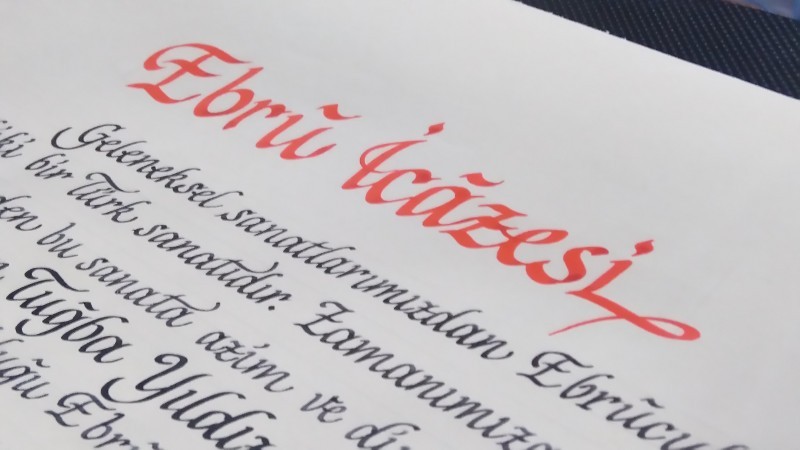 Ebrũ İcãzesi
Geleneksel sanatlarımızdan Ebrũcul
bir Türk sanatıdır. Zamanımızd
bu sanata azim ve
Tuğba Yıldız
Ebrũ